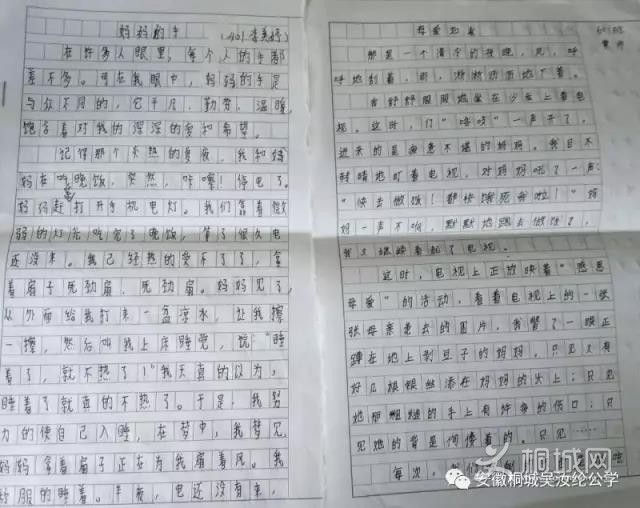 妈妈的手
在许多人眼里,每个人的手都
差不多。可在我眼中,妈妈的手是
与众不同的,它平凡,勤劳,温暖,
饱含着对我的深深的爱和希望。
记得那个炎热的夏夜,我和妈
妈在吃晚饭,突然,咔嚓!停电了。
妈妈赶打开手机电灯。我们靠着微
弱的灯光吃完了晚饭,等了很久电
还没来。我已经热的受不了了,拿
着扇子死劲扇,死劲扇。妈妈见了,
从外面给我打来一盆凉水,让我擦
一擦,然后叫我上床睡觉,说:“睡
着了,就不热了!”我天真的以为,
睡着了就真的不热了。于是,我努
力的使自己入睡,在梦中,我梦见
妈妈拿着扇子正在为我扇着风。我
舒服的睡着。半夜,电还没有来,
母爱如
601班
那是一个清冷的夜晚,风,呼
呼地刮着,雨,淅淅沥沥地下着。
我舒舒服服地坐在沙发上看电
视。这时,门“咯吱”一声开了,
进来的是疲惫不堪的妈妈。我目不
转睛地盯着电视,对妈妈吼了一声:
“快去做饭!都快饿死我啦!”妈
妈一声不响,默默地跑去做饭了,
我又继续看起了电视。
这时,电视上正放映着“感恩
母爱”的活动,看着电视上的一张
张母亲衰老的图片,我瞥了一眼正
蹲在地上剥豆子的妈妈,只见又有
好几根银丝添在妈妈的头上;只见
她那粗糙的手上有许多的伤口;只
见她的背是佝偻着的。只见……
每次,我们
桐城网
安徽桐城吴汝纶公学